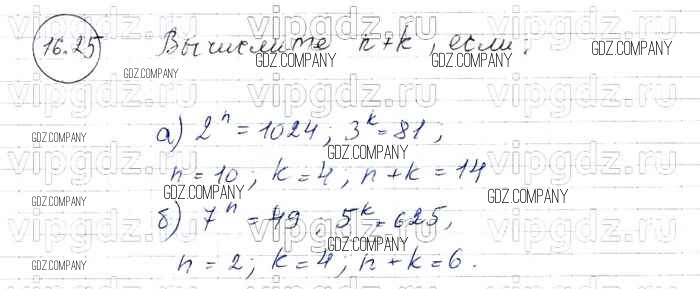 16.25 Вычислите n+k, если:
а) 2ⁿ = 1024; 3ᵏ = 81;
n = 10; k = 4; n+k = 14
б) 7ⁿ = 49, 5ᵏ = 625,
n = 2; k = 4; n+k = 6.
vipgdz.ru
GDZ.COMPANY